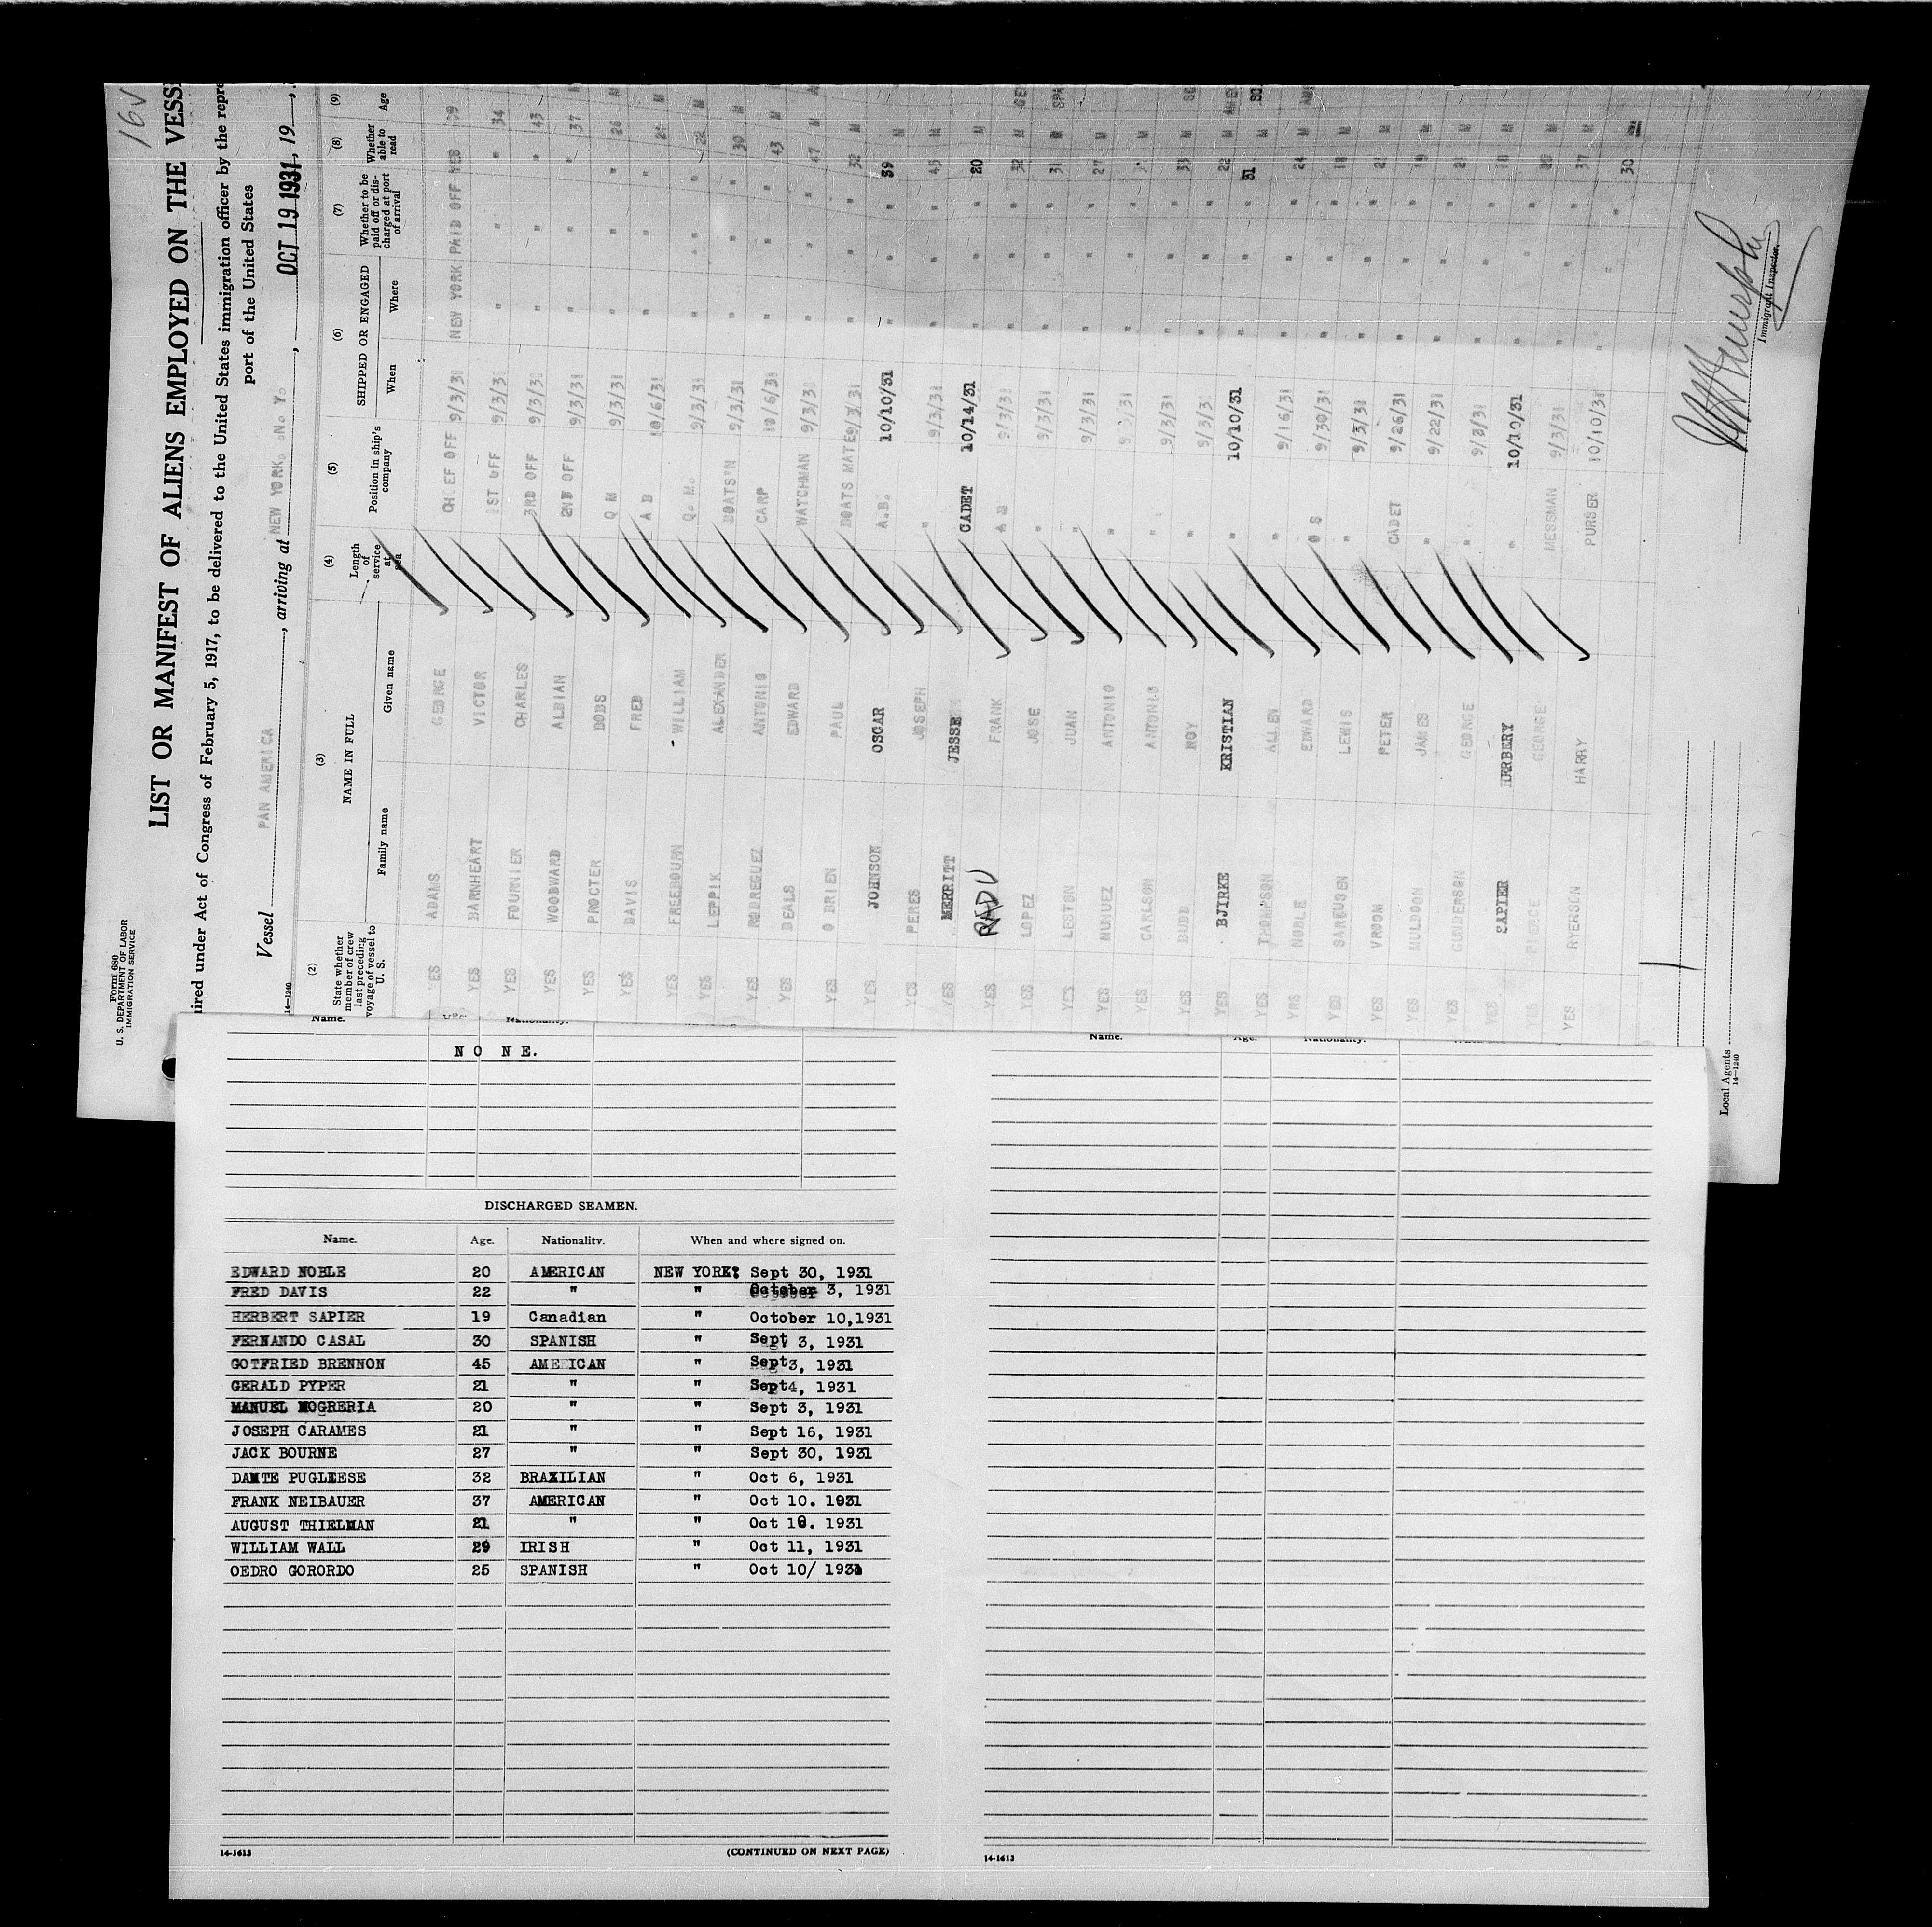 16V
Form 680
U. S. DEPARTMENT OF LABOR
IMMIGRATION SERVICE
LIST OR MANIFEST OF ALIENS EMPLOYED ON THE VESS
ired under Act of Congress of February 5, 1917, to be delivered to the United States immigration officer by the repre
port of the United States
Vessel PAN AMERICA, arriving at NEW YORK, N. Y., OCT 19 1931, 19
14-1240
(2) (3) (4) (5) (6) (7) (8) (9)
State whether member of crew last preceding voyage of vessel to U. S.
NAME IN FULL
Family name Given name
Length of service at sea
Position in ship's company
SHIPPED OR ENGAGED
When Where
Whether to be paid off or discharged at port of arrival
Whether able to read
Age
YES ADAMS GEORGE CHIEF OFF 9/3/31 NEW YORK PAID OFF YES 39
YES BARNHEART VICTOR 1ST OFF 9/3/31 " " " 34
YES FOURNIER CHARLES 3RD OFF 9/3/31 " " " 43
YES WOODWARD ALBIAN 2ND OFF 9/3/31 " " " 37
YES PROCTER DOBS Q M 9/3/31 " " " 26 M
YES DAVIS FRED A B 10/6/31 " " " M
YES FREEBOURN WILLIAM Q. M. 9/3/31 " " " 22 M
YES LEPPIK ALEXANDER BOATS'N 9/3/31 " " " 30 M
YES RODREGUEZ ANTONIO CARP 10/6/31 " " " 43 M
YES DEALS EDWARD WATCHMAN 9/3/31 " " " 47 M
YES O BRIEN PAUL BOATS MATE 9/3/31 " " " 32 M
YES JOHNSON OSCAR A.B. 10/10/31 " " " 39 M
YES PERES JOSEPH " 9/3/31 " " " 45 M
YES MERRITT JESSE CADET 10/14/31 " " " 20 M
YES RADU FRANK A B 9/3/31 " " " 32 M GE
YES LOPEZ JOSE " 9/3/31 " " " 31 M SPA
YES LESTON JUAN " 9/3/31 " " " 27 M
YES NUNUEZ ANTONIO " 9/3/31 " " " M
YES CARLSON ANTONIO " 9/3/31 " " " 33 M SC
YES BUDD ROY " 9/3/31 " " " 22 M
YES BJIRKE KRISTIAN " 10/10/31 " " " 31 M
YES THOMPSON ALLEN " 9/16/31 " " " 24 M
YES NOBLE EDWARD O S 9/30/31 " " " 18 M
YES SAREUSEN LEWIS " 9/3/31 " " " 21 M
YES VROOM PETER CADET 9/26/31 " " " 19 M
YES MULDOON JAMES " 9/22/31 " " " 21 M
YES GUNDERSON GEORGE " 9/3/31 " " " 18 M
YES SAPIER HERBERY " 10/10/31 " " " M
YES PIERCE GEORGE MESSMAN 9/3/31 " " " 37 M
YES RYERSON HARRY PURSER 10/10/31 " " " 30
Immigrant Inspector.
Local Agents
14-1240
Name. Age. Nationality.
NONE.
DISCHARGED SEAMEN.
Name. Age. Nationality. When and where signed on.
EDWARD NOBLE 20 AMERICAN NEW YORK: Sept 30, 1931
FRED DAVIS 22 " " October 3, 1931
HERBERT SAPIER 19 Canadian " October 10,1931
FERNANDO CASAL 30 SPANISH " Sept 3, 1931
GOTFRIED BRENNON 45 AMERICAN " Sept 3, 1931
GERALD PYPER 21 " " Sept 4, 1931
MANUEL NOGRERIA 20 " " Sept 3, 1931
JOSEPH CARAMES 21 " " Sept 16, 1931
JACK BOURNE 27 " " Sept 30, 1931
DANTE PUGLIESE 32 BRAZILIAN " Oct 6, 1931
FRANK NEIBAUER 37 AMERICAN " Oct 10. 1931
AUGUST THIELMAN 21 " " Oct 10. 1931
WILLIAM WALL 29 IRISH " Oct 11, 1931
OEDRO GORORDO 25 SPANISH " Oct 10/ 1931
14-1613
(CONTINUED ON NEXT PAGE)
Name. Age. Nationality.
14-1613